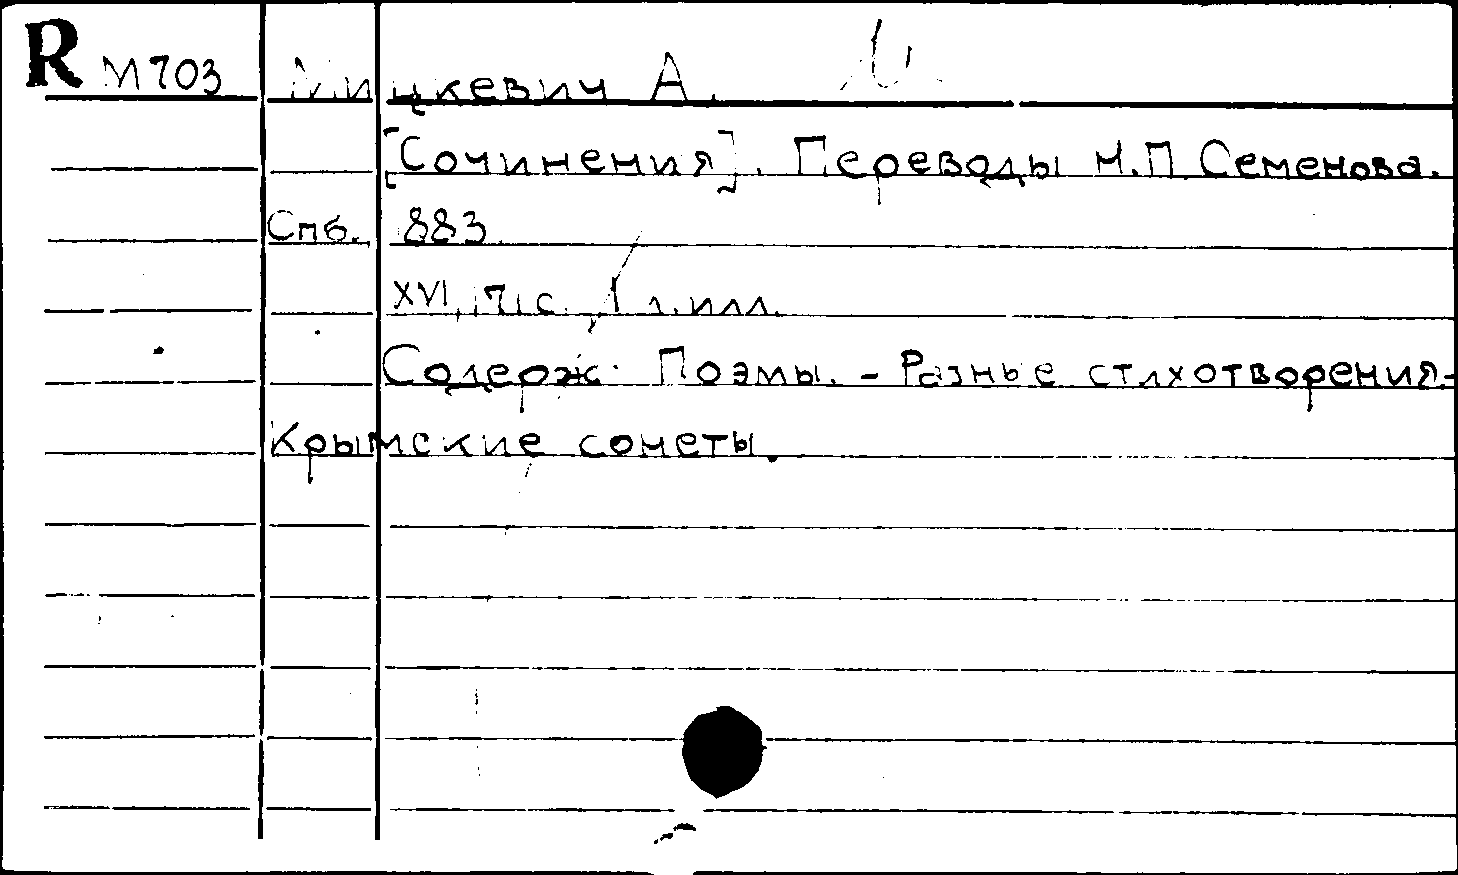 R М703 Мицкевич А.
[Сочинения]. Переводы Н.П Семенова.
Спб. 883
XVI, 171 с., 1 л. илл.
Содерж. Поэмы. - Разные стихотворения-
Крымские сонеты.